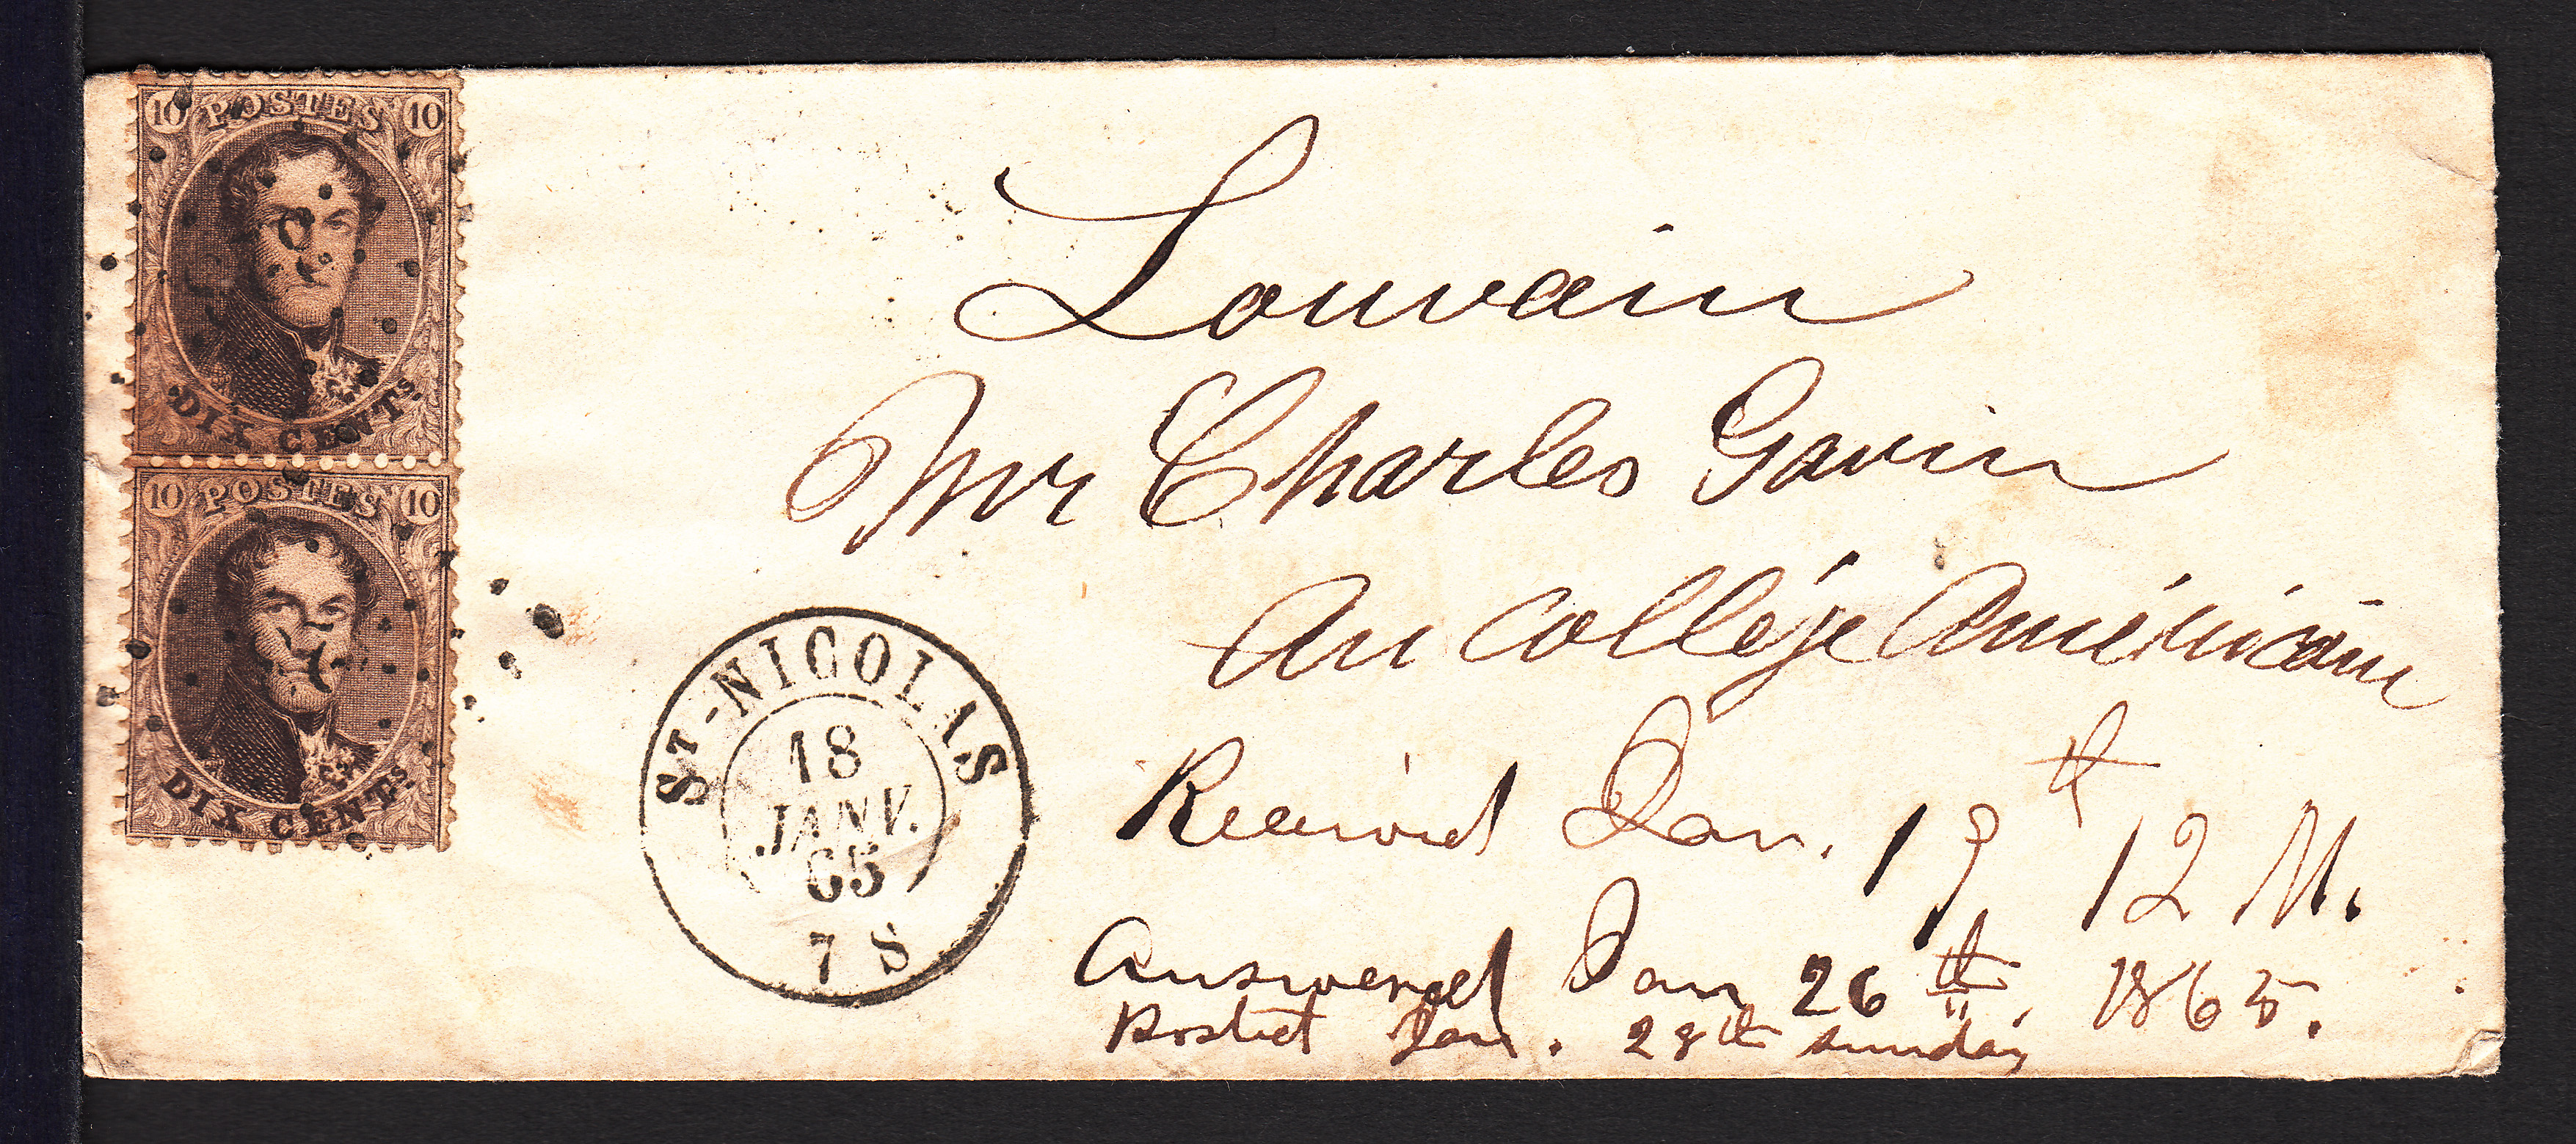 10 POSTES 10
DIX CENTS.
10 POSTES 10
DIX CENTS.
Louvain
Mr Charles Gavin
Au Collége Américain
ST-NICOLAS
18
JANV.
65
7 S
Received Jan. 19th 12 M.
Answered Jan 26th. 1865.
Posted Jan. 28th sunday